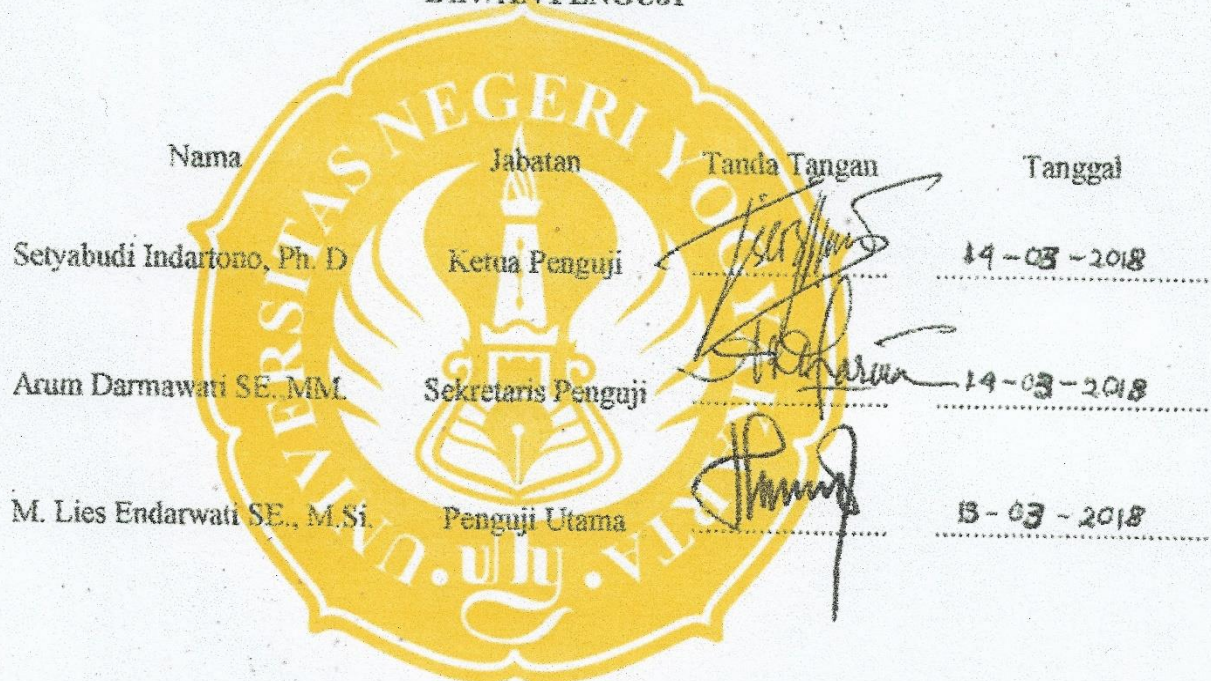 DEWAN PENGUJI
UNIVERSITAS NEGERI YOGYAKARTA
uny
Nama Jabatan Tanda Tangan Tanggal
Setyabudi Indartono, Ph. D Ketua Penguji 14-03-2018
Arum Darmawati SE., MM. Sekretaris Penguji 14-03-2018
M. Lies Endarwati SE., M.Si. Penguji Utama 13-03-2018